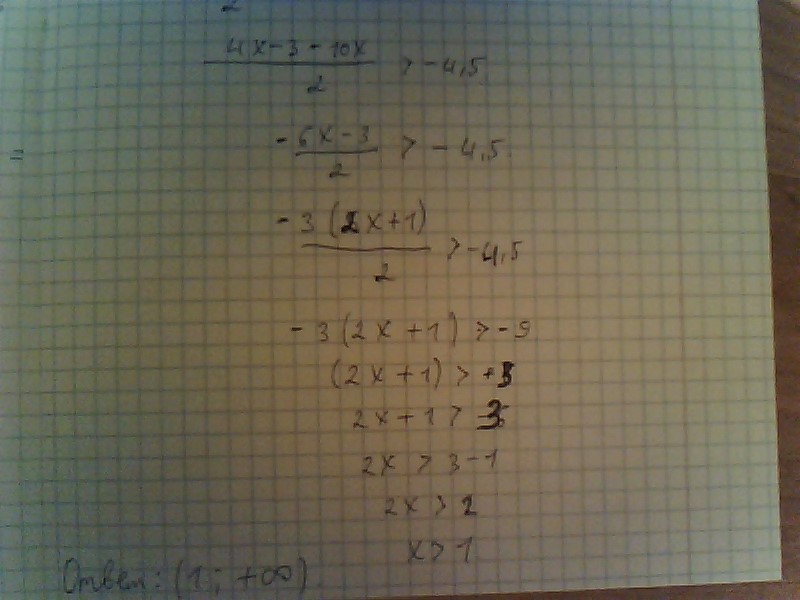 2
4x-3-10x / 2 > -4,5
=
-6x-3 / 2 > -4,5
-3(2x+1) / 2 > -4,5
-3(2x+1) > -9
(2x+1) > +3
2x+1 > 3
2x > 3-1
2x > 2
x > 1
Ответ: (1; +∞)